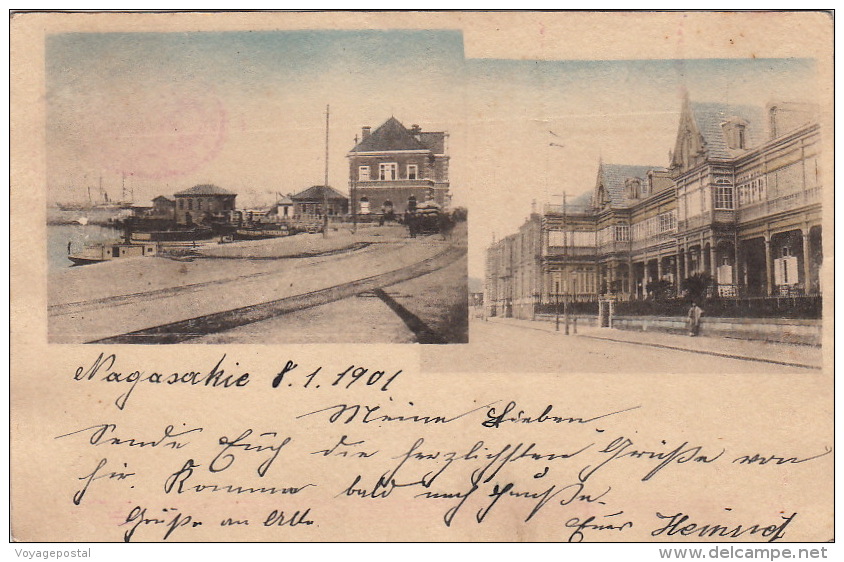 Nagasackie 8.1.1901
Meine Lieben
Sende Euch die herzlichsten Grüße von
hir. Komme bald nach Hauße.
Grüße an Alle.
Euer Heinrich
Voyagepostal
www.delcampe.net